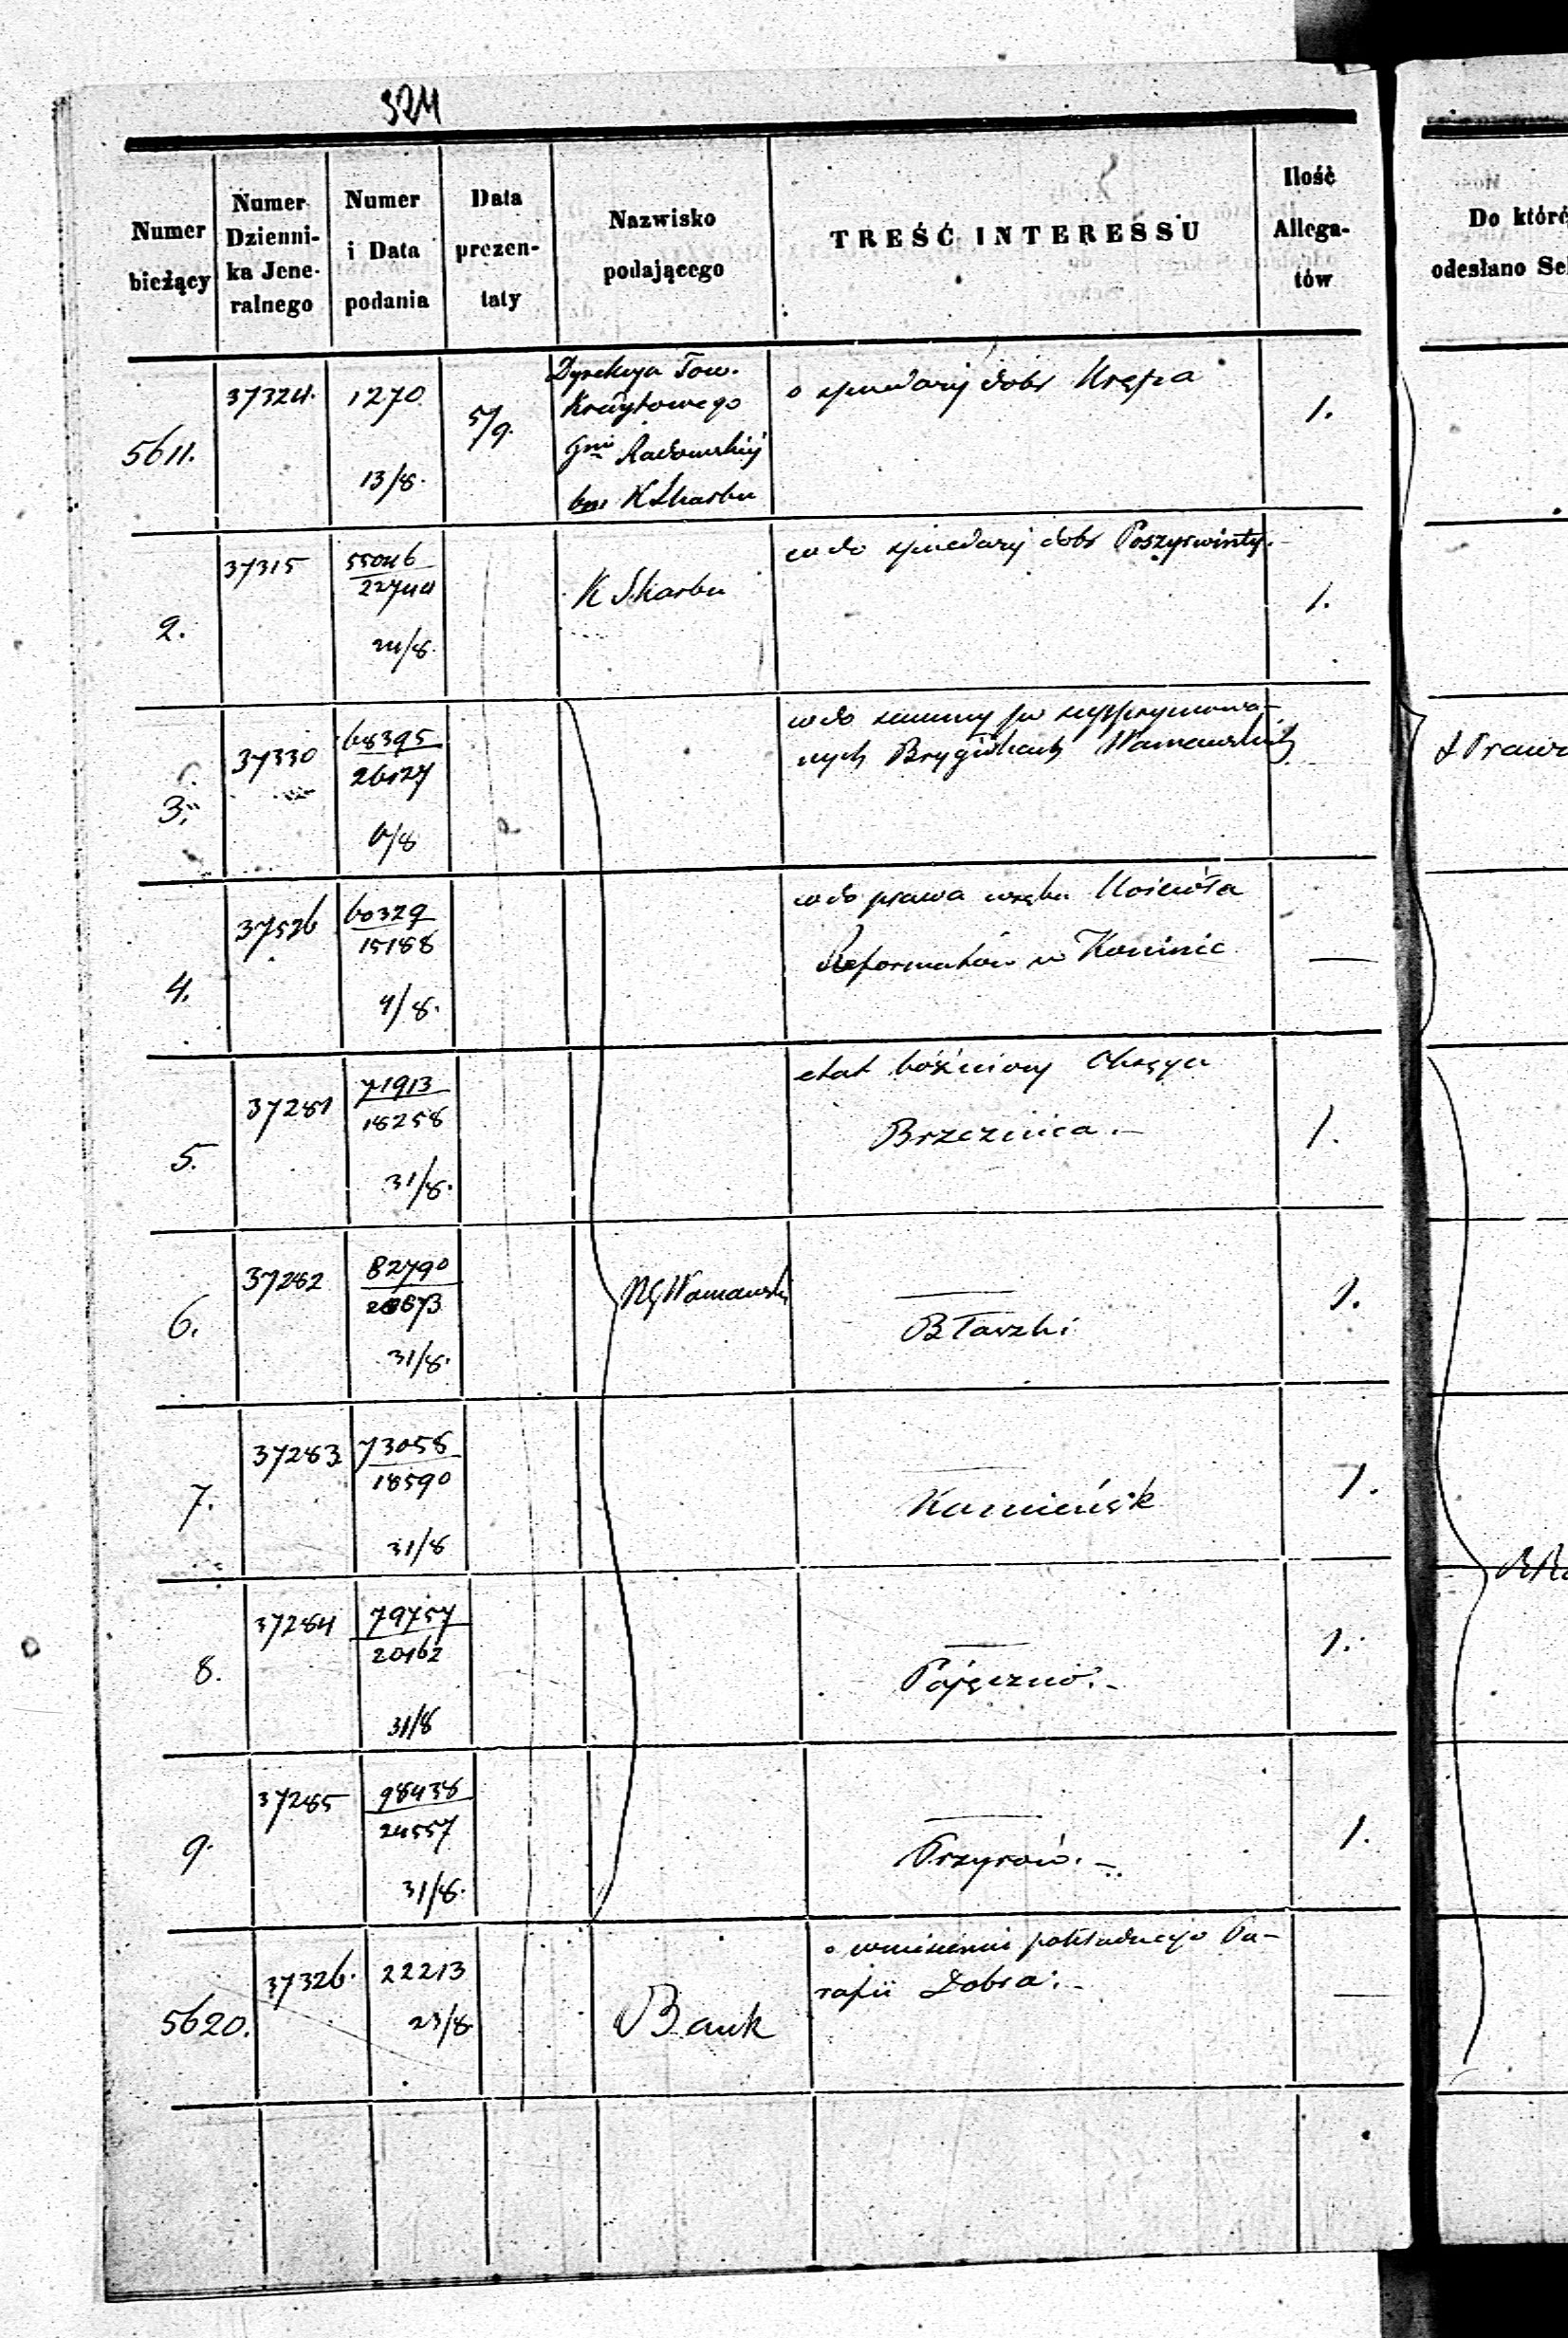 324
Numer bieżący
Numer Dzienni-ka Jene-ralnego
Numer i Data podania
Data prezen-taty
Nazwisko podającego
TREŚĆ INTERESSU
Ilość Allega-tów
Do któré
odesłano Se
5611.
37324.
1270
13/8.
5/9.
Dyrekcya Tow.
Kredytowego
Gni Radomskiej
K Skarbu
o sprzedaży dobr Krępa
1.
2.
37315
55046
22744
24/8.
K Skarbu
wdo sprzedaży dobr Poszyrwinty.
1.
3.
37330
68395
26127
6/8
wdo summy po
nych Brygidkach Warszawskich
4.
37526
60329
15188
4/8.
wdo prawa wrębu Kościoła
Reformatów w Koninie
—
5.
37281
71913
18258
31/8.
etat bóżniczny Okręgu
Brzeznica.—
1.
6.
37282
82790
31/8.
RG Warszawski
—
Błaszki
1.
7.
37283
73058
18590
31/8
—
Kamieńsk
1.
8.
37284
79757
20162
31/8
—
Pajęczno.—
1.
9.
37285
98438
24557
31/8.
—
Przyrów.—
1.
5620.
37326.
22213
23/8
Bank
o wniesieniu pokładnego Pa-
rafii Dobra.—
—